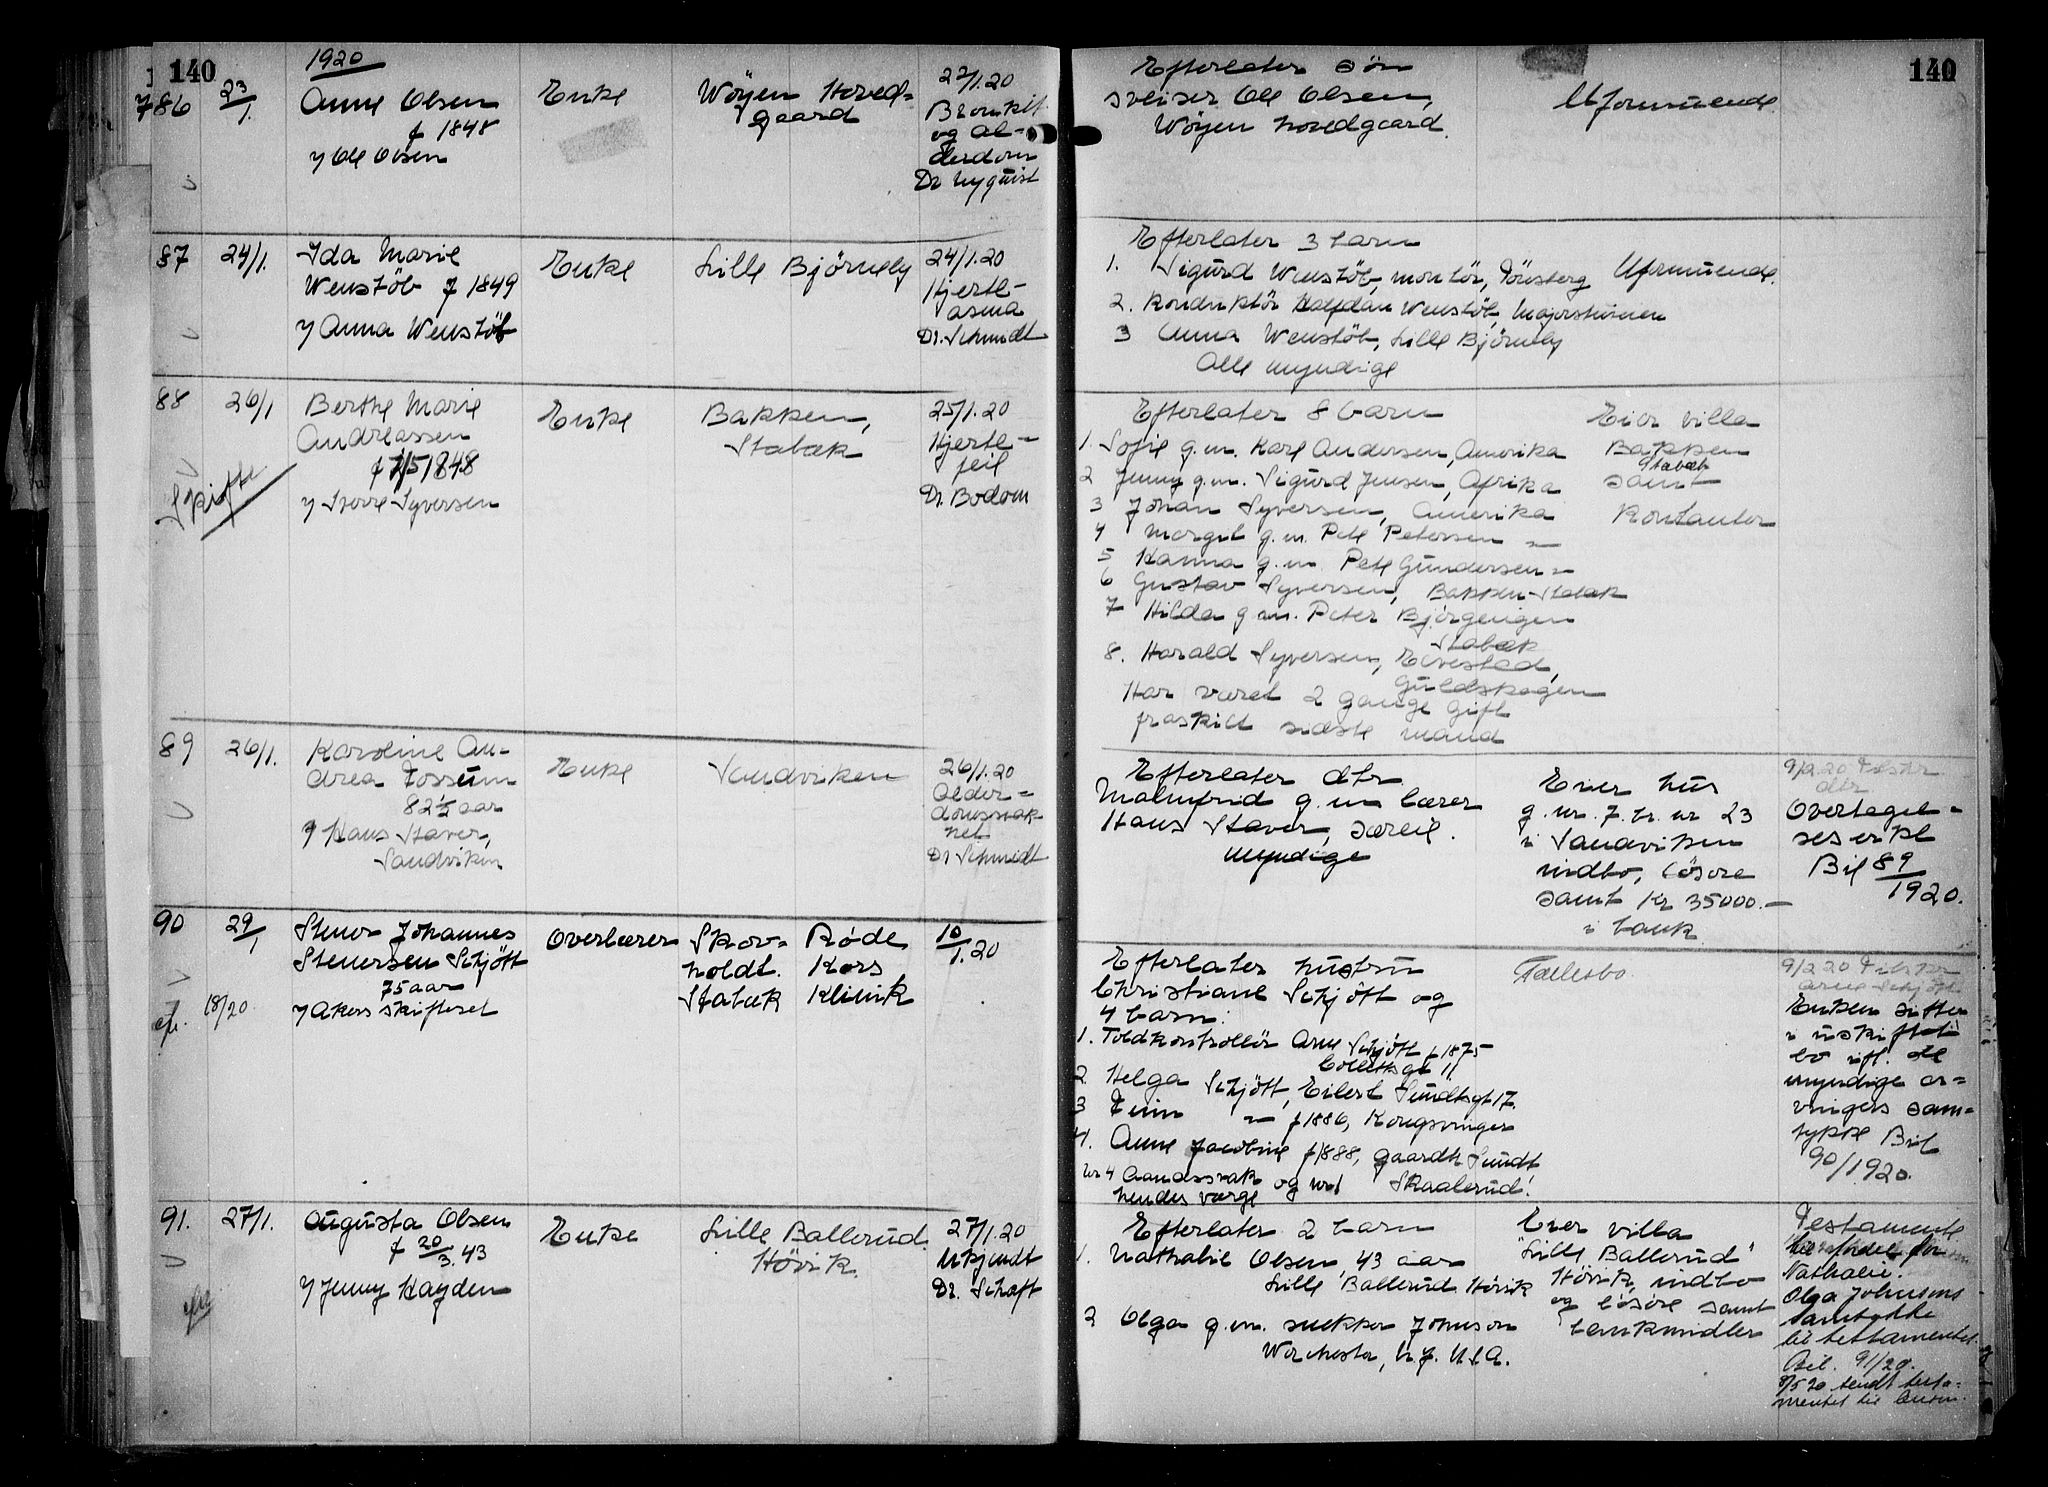 140
1920
786
23/1.
Anne Olsen
f 1848
v/ Ole Olsen
Enke
Wöyen Hoved-
gaard
22/1.20
Bronkit
og al-
derdom
Dr Nyquist
Efterlater sön
sveiser Ole Olsen,
Wöyen hovedgaard.
Uformuende
140
87
24/1.
Ida Marie
Wenstöb f 1849
v/ Anna Wenstöb
Enke
Lille Björneby
24/1.20
Hjerte-
asma
Dr. Schmidt
Efterlater 3 barn
1. Sigurd Wenstöb, montör, Tönsberg
2. Konduktör Halfdan Wenstöb, Majorstuen
3 Anna Wenstöb, Lille Björneby
Alle myndige
Uformuende.
88
26/1
Skifte
Berthe Marie
Andreassen
f 7/5 1848
v/ Syversen
Enke
Bakken,
Stabæk
25/1.20
Hjerte-
feil
Dr. Bodom
Efterlater 8 barn
1. Sofie g.m. Karl Andersen, Amerika
2 Jenny g.m. Sigurd Jensen, Afrika
3 Johan Syversen, Amerika
4 Margit g.m. Pete Petersen "
5 Hanna g.m. Pete Gundersen "
6 Gustav Syversen, Bakken Stabæk
7 Hilda g.m. Peter Björgeengen
Stabæk
8. Harald Syversen,
Guldskogen
Har været 2 gange gift
fraskilt sidste mand
Eier villa
Bakken
Stabæk
samt
Kontanter
89
26/1.
Karoline An-
drea Fossum
82 1/2 aar
v/ Hans Staver,
Sandviken
Enke
Sandviken
26/1.20
Alder-
domssvak-
het
Dr Schmidt
Efterlater dtr.
Malmfrid g.m lærer
Hans Staver, særeie.
myndige
Eier hus
g.nr. 7. br. nr 23
i Sandviken
indbo, lösöre
samt Kr 35000.-
i bank
9/2.20
dtr.
Overtagel-
ses erkl
Bil 89/1920.
90
29/1
18/20
Stener Johannes
Stenersen Schjött
75 aar
v/ Akers skifteret
Overlærer
Skov-
holdt.
Stabæk
Röde
Kors
Klinik
10/1.20
Efterlater hustru
Christiane Schjött og
4 barn:
1. Toldkontrollör Arne Schjött f 1875
Collettsgt 11
2 Helga Schjött, Eilert Sundtsgt 17.
3 Finn " f 1886, Kongsvinger
4. Anne Jacobine f 1888, gaardb Sundt
Skaalerud.
nr 4 Aandssvak og nr 1
hendes værge
Fællesbo.
9/2 20
Arne Schjött
Enken sitter
i uskiftet
bo ifl. de
myndige ar-
vingers sam-
tykke Bil
90/1920.
91.
27/1.
Augusta Olsen
f 20/3.43
v/ Jenny Hayden
Enke
Lille Ballerud.
Hövik.
27/1.20
Ukjendt
Dr. Schaft
Efterlater 2 barn
1. Nathalie Olsen, 43 aar
Lille Ballerud Hövik
2 Olga g.m. snekker Johnson
Worchester, N.J. U.S.A.
Eier villa
"Lille Ballerud"
Hövik, indbo
og lösöre samt
bankmidler
Testamente
til fordel for
Nathalie.
Olga Johnsons
samtykke
til testamentet.
Bil. 91/20.
8/5 20 sendt testa-
mentet til